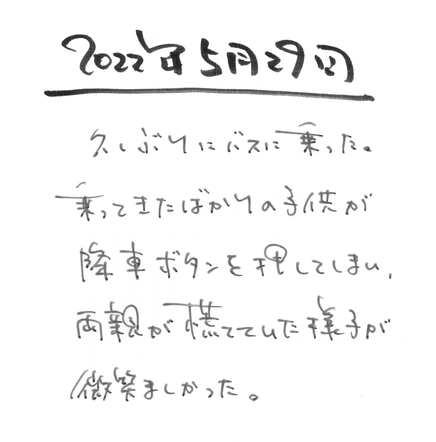 2022年5月29日
久しぶりにバスに乗った。
乗ってきたばかりの子供が
降車ボタンを押してしまい、
両親が慌てていた様子が
微笑ましかった。